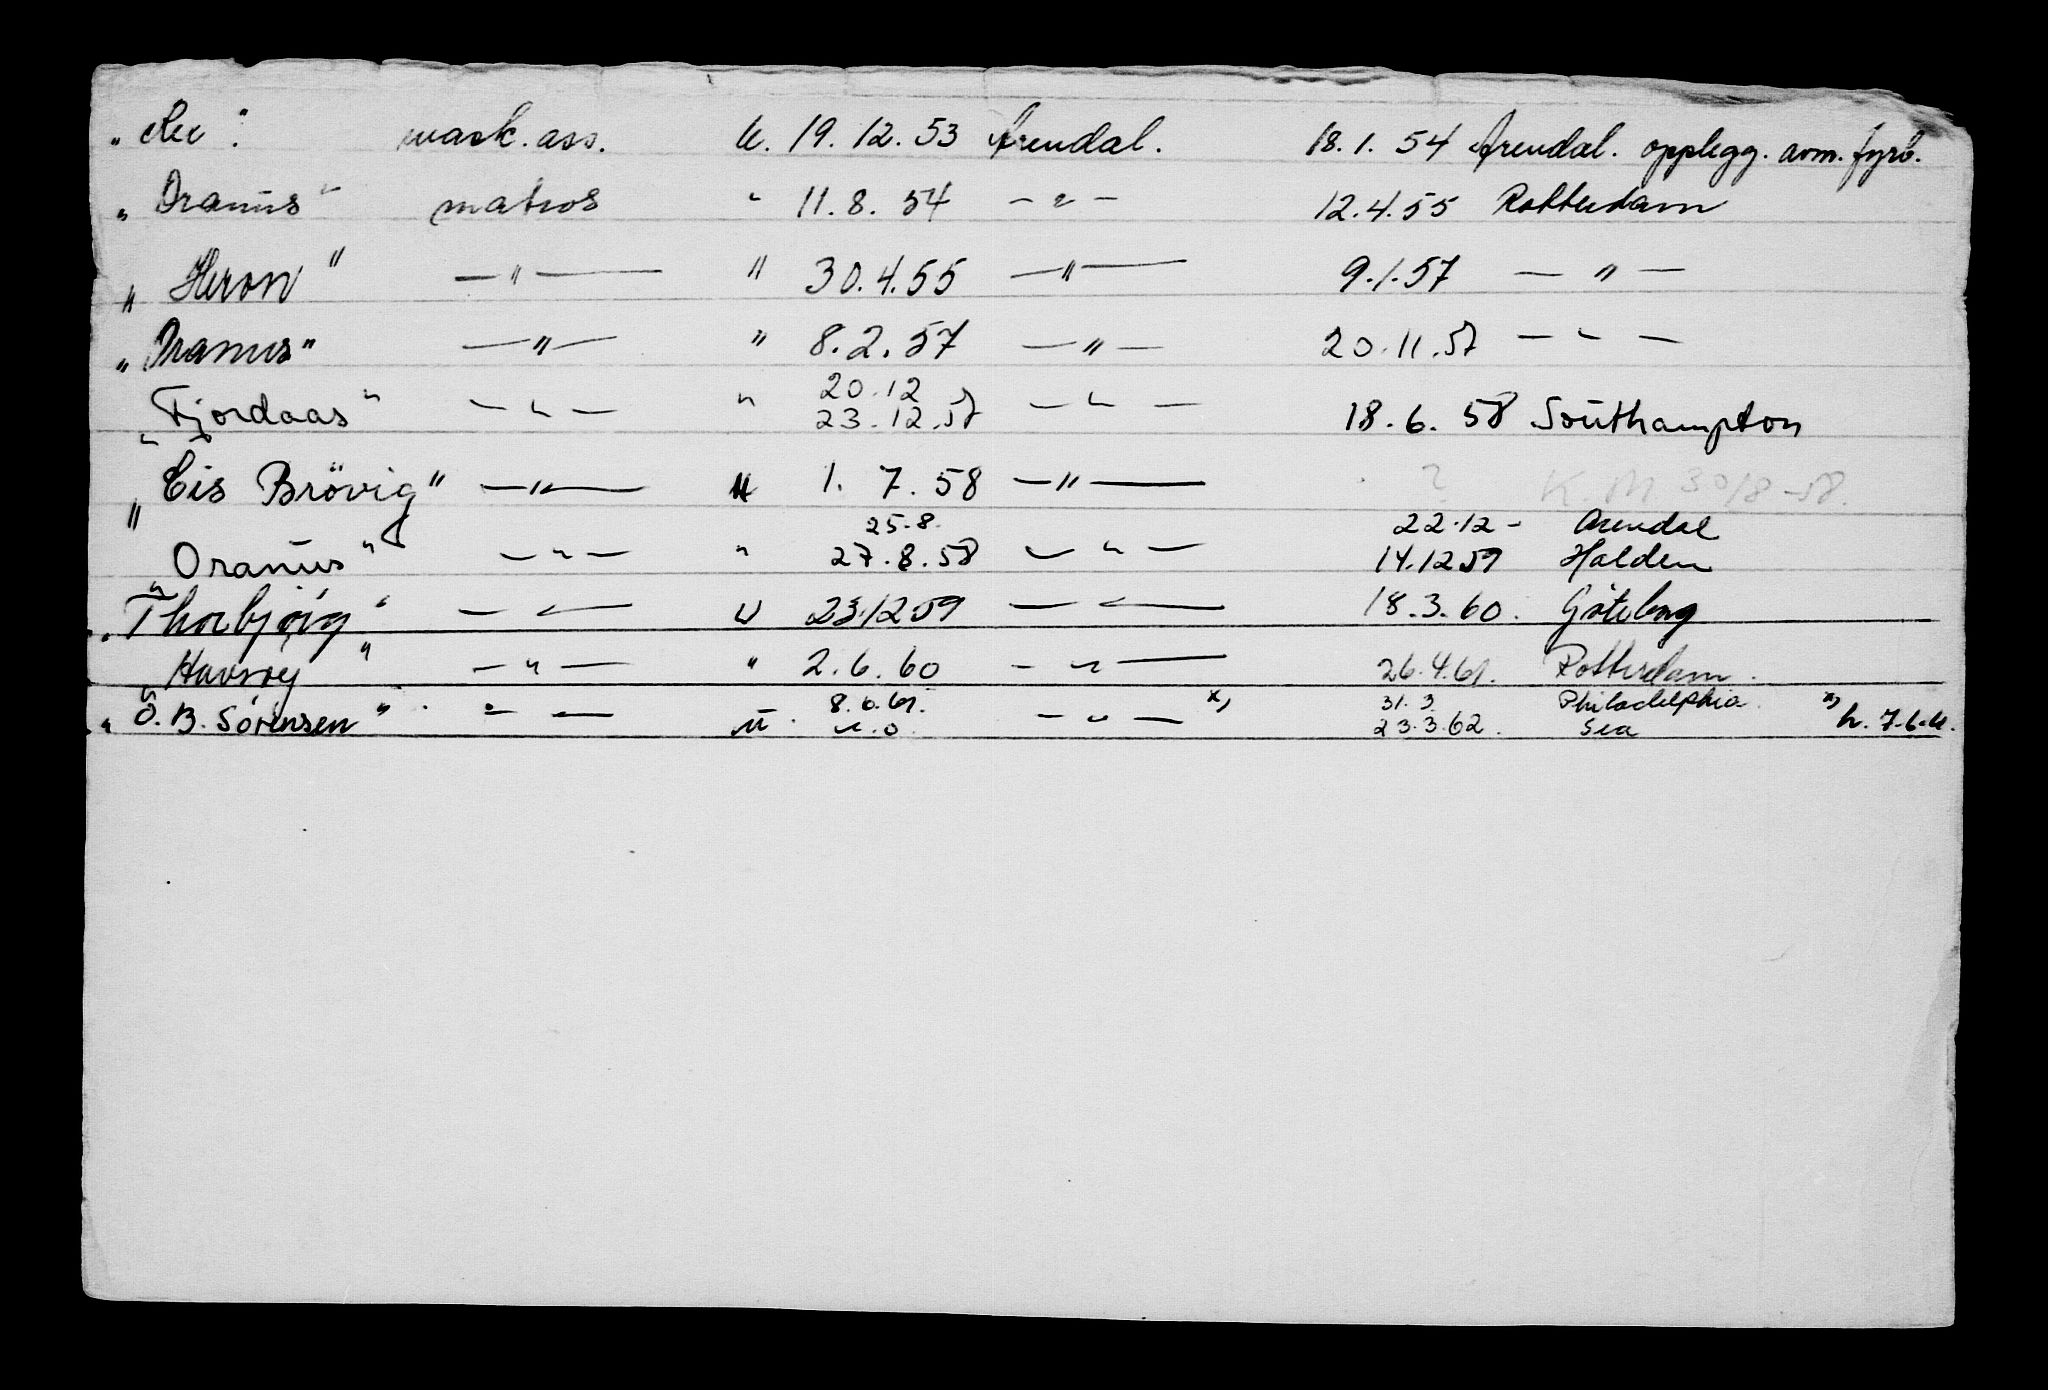 mask. ass. u. 19.12.53 Arendal. 18.1.54 Arendal. opplegg. avm. fyrb.
„Oranus" matros " 11.8.54 — " — 12.4.55 Rotterdam
„Heron" — " — " 30.4.55 — " — 9.1.57 — " —
„Oranus" — " — " 8.2.57 — " — 20.11.57 — " —
20.12
„Fjordaas" — " — " 23.12.57 — " — 18.6.58 Southampton
„Cis Brövig" — " — u 1.7.58 — " — ? K.M 30/8-58.
25.8. 22.12 - Arendal
„Oranus" — " — " 27.8.58 — " — 14.12 59 Halden
„Thorbjørg" — " — u 23.12 59 — " — 18.3.60. Göteborg
„Havsøy" — " — " 2.6.60 — " — 26.4.61. Rotterdam.
8.6.61. x) 31.3. Philadelphia. x)
„O.B. Sørensen" — " — u. u.o. — " — 23.3.62. Sea h. 7.6.61.